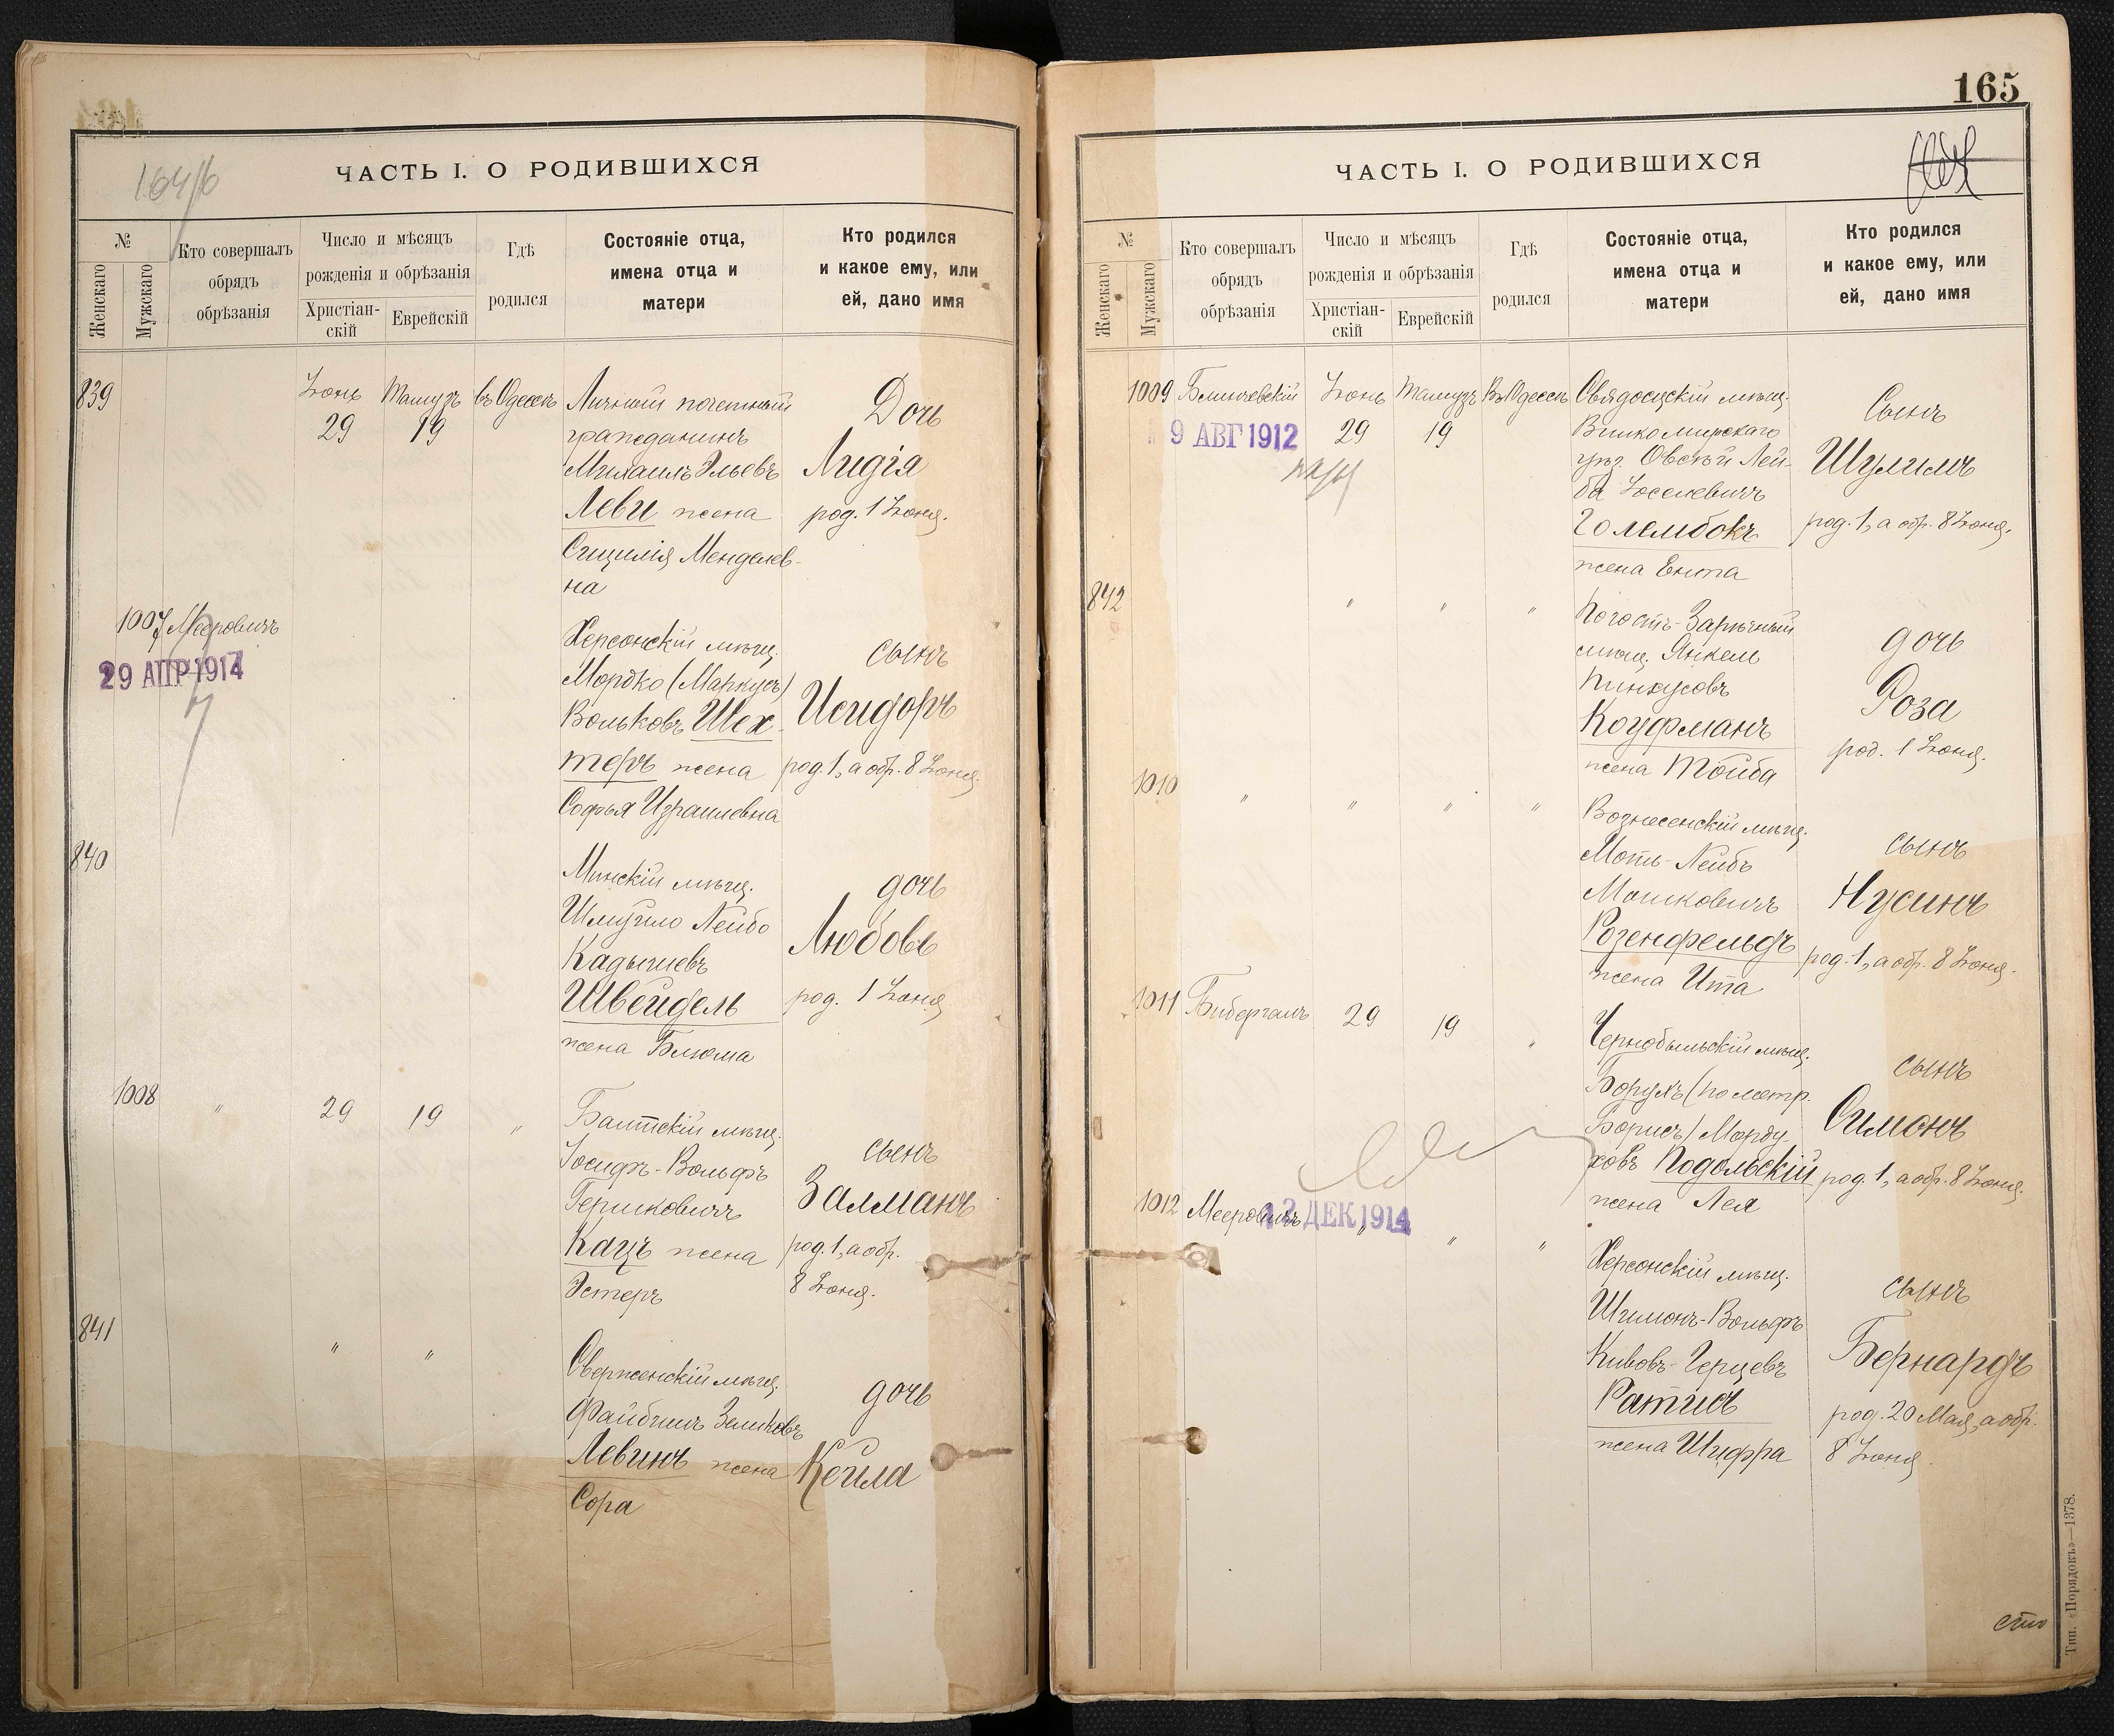 164/б
ЧАСТЬ I. О РОДИВШИХСЯ
№
Женскаго
Мужскаго
Кто совершалъ
обрядъ
обрѣзанія
Число и мѣсяцъ
рожденія и обрѣзанія
Христіан-
скій
Еврейскій
Гдѣ
родился
Состояніе отца,
имена отца и
матери
Кто родился
и какое ему, или
ей, дано имя
839
Іюнь
29
Тамузъ
19
въ Одессѣ
Личный почетный
гражданинъ
Михаилъ Эльевъ
Леви жена
Сицилія Менделев-
на
Дочь
Лидія
род. 1 Іюня.
1007 Мееровичъ
29 АПР 1914
Херсонскій мѣщ.
Мордко (Маркусъ)
Вольковъ Шех-
теръ жена
Софья Израилевна
сынъ
Исидоръ
род. 1, а обр. 8 Іюня.
840
Минскій мѣщ.
Шмуйло Лейбо
Кадышевъ
Швейдель
жена Блюма
дочь
Любовь
род. 1 Іюня
1008
"
29
19
"
Балтскій мѣщ.
Іосифъ-Вольфъ
Гершковичъ
Кацъ жена
Эстеръ
сынъ
Залманъ
род. 1, а обр.
8 Іюня.
841
"
"
Сверженскій мѣщ.
Файбишъ Зельковъ
Левинъ жена
Сора
дочь
Кейла
165
ЧАСТЬ I. О РОДИВШИХСЯ
№
Женскаго
Мужскаго
Кто совершалъ
обрядъ
обрѣзанія
Число и мѣсяцъ
рожденія и обрѣзанія
Христіан-
скій
Еврейскій
Гдѣ
родился
Состояніе отца,
имена отца и
матери
Кто родился
и какое ему, или
ей, дано имя
1009
Блинчевскій
9 АВГ 1912
Іюнь
29
Тамузъ
19
Въ Одессѣ
Свядосцскій мѣщ.
Вилкомирскаго
уѣз. Овсѣй Лей-
ба Іоселевичъ
Голембокъ
жена Ента
Сынъ
Шулимъ
род. 1, а обр. 8 Іюня.
842
"
"
"
Погостъ-Зарѣчный
мѣщ. Янкель
Пинхусовъ
Коуфманъ
жена Тойба
дочь
Роза
род. 1 Іюня.
1010
"
"
"
"
Вознесенскій мѣщ.
Моть-Лейбъ
Мошковичъ
Розенфельдъ
жена Ита
сынъ
Нусинъ
род. 1, а обр. 8 Іюня.
1011
Бибергалъ
29
19
"
Чернобыльскій мѣщ.
Борухъ (по метр.
Борисъ) Морду-
ховъ Подольскій
жена Лея
сынъ
Симонъ
род. 1, а обр. 8 Іюня.
1012
Мееровичъ
12 ДЕК 1914
"
"
"
Херсонскій мѣщ.
Шимонъ-Вольфъ
Кивовъ-Герцевъ
Ратисъ
жена Шифра
сынъ
Бернардъ
род. 20 Мая, а обр.
8 Іюня
сто
Тип. «Порядокъ»—1378.